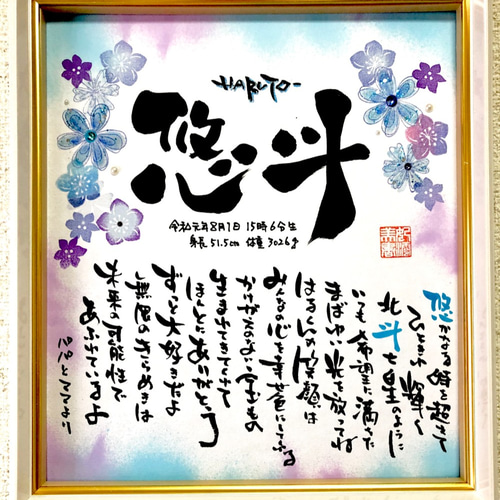 -HARUTO-
悠斗
令和元年8月1日 15時6分生
身長51.5cm 体重3026g
悠かなる時を超えて
ひときわ輝く
北斗七星のように
いつも希望に満ちた
まばゆい光を放ってね
はるくんの笑顔は
みんなの心を幸せにしてくれる
かけがえのない宝もの
生まれてきてくれて
ほんとにありがとう
ずっと大好きだよ
無限のきらめきは
未来の可能性で
あふれているよ
パパとママより